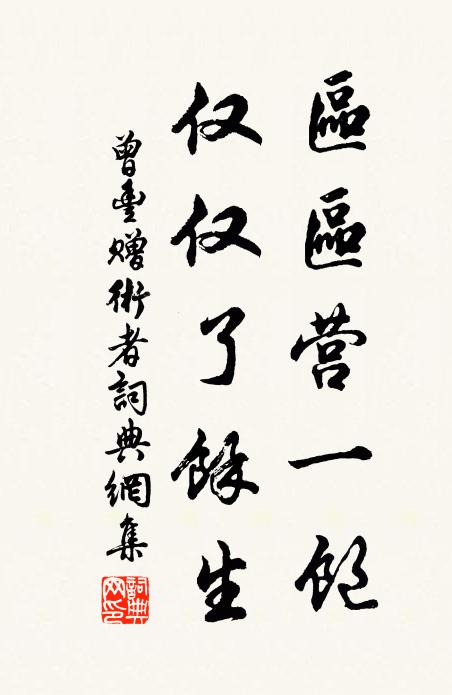 區區营一飽
仅仅了餘生
曾豊贈術者詞典網集
詞典網印